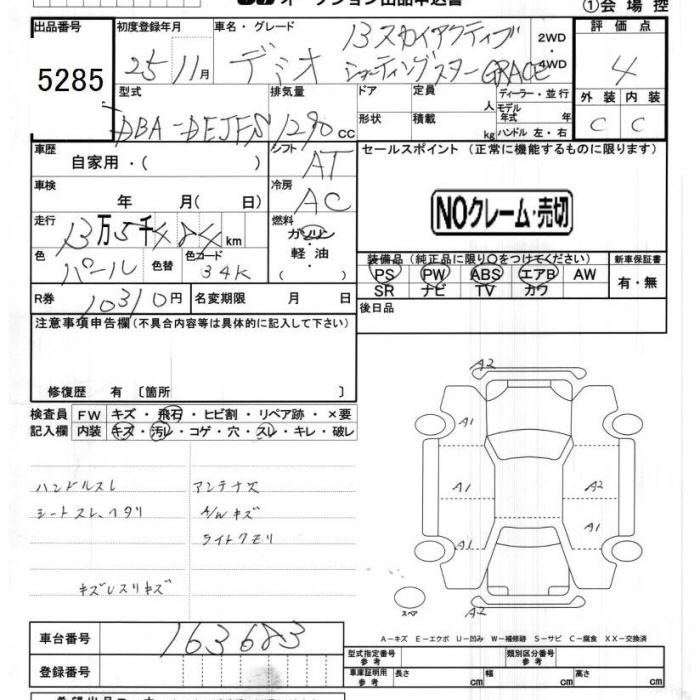 オークション出品申込書
①会場控
出品番号
5285
初度登録年月
25 11月
車名・グレード
デミオ
13スカイアクティブ
シューティングスターGRACE
2WD
・4WD
評価点
4
型式
DBA-DEJFS
排気量
1290cc
ドア
形状
定員 人
積載 kg
ディーラー・並行
モデル年式 年
ハンドル 左・右
外装 内装
C C
車歴
自家用・( )
シフト
AT
セールスポイント (正常に機能するものに限ります)
車検
年 月( 日)
冷房
AC
NOクレーム・売切
走行
13万5千484km
燃料
ガソリン・
軽油・
( )
色
パール
色替
色コード
34K
装備品 (純正品に限り○をつけてください)
新車保証書
PS PW ABS エアB AW
SR ナビ TV カワ
有・無
R券
10310円
名変期限 月 日
後日品
注意事項申告欄 (不具合内容等は具体的に記入して下さい)
修復歴 有 〔箇所 〕
検査員
記入欄
FW キズ・飛石・ヒビ割・リペア跡・×要
内装 キズ・汚レ・コゲ・穴・スレ・キレ・破レ
ハンドルスレ
アンテナ欠
シートスレ、ヘタリ
A/Wキズ
ライトクモリ
キズレスリキズ
A2
A1
A1
A2
A1
A1
A2
スペア
A-キズ E-エクボ U-凹み W-補修跡 S-サビ C-腐食 XX-交換済
車台番号
163683
登録番号
型式指定番号
参考
類別区分番号
参考
車庫証明用
参考
長さ cm
幅 cm
高さ cm
希望出品コーナー